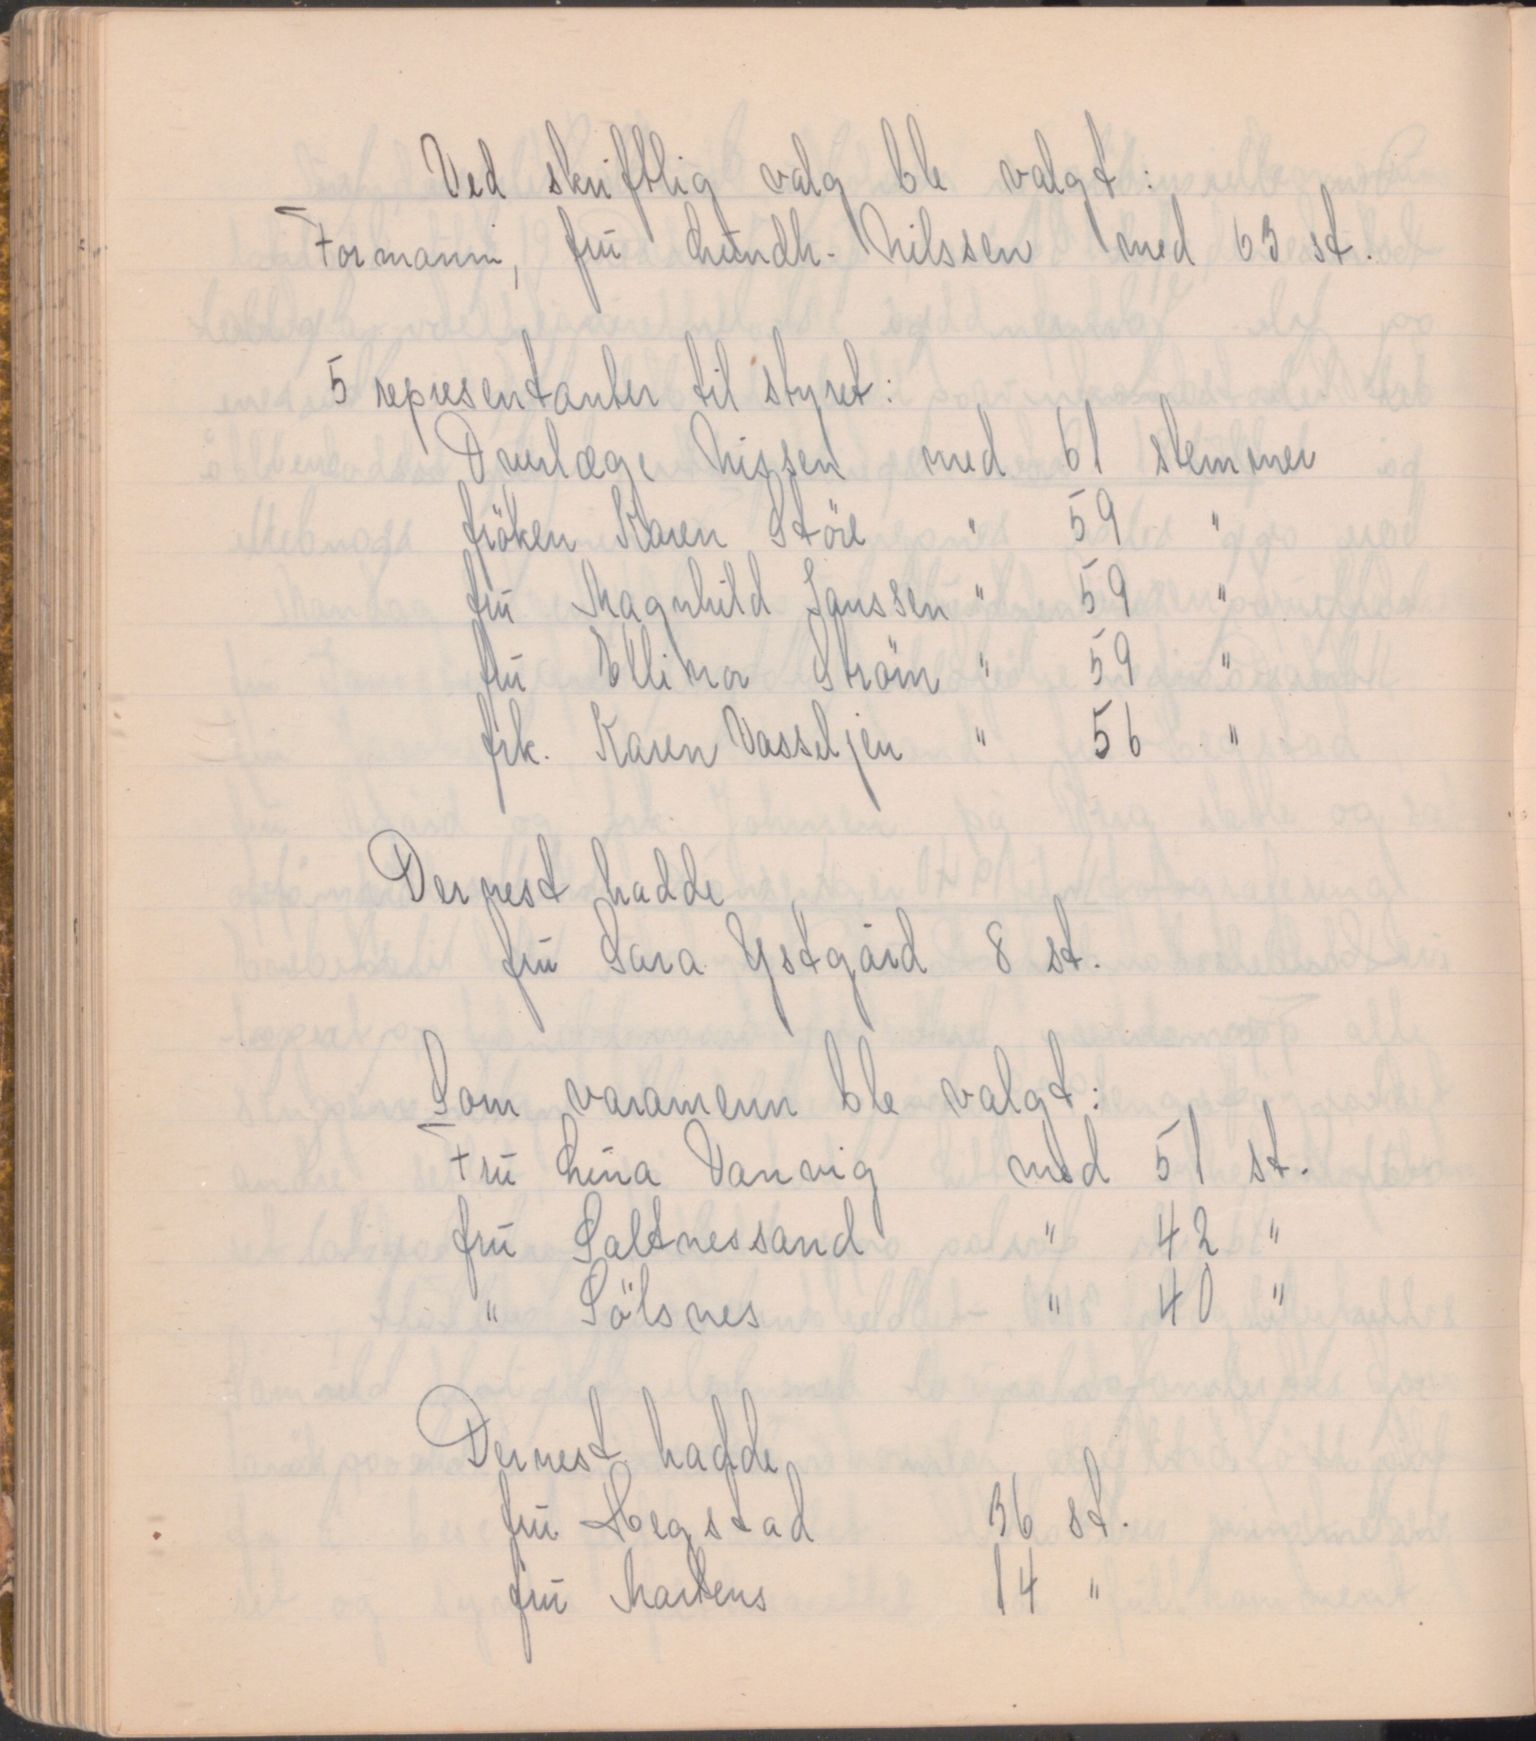 Ved skriftlig valg ble valgt:
Formann, frū Lūndh-Nilssen med 63 st.
5 representanter til styret:
Overlæge Nissen med 61 stemmer
fröken Karen Störe " 59 "
frū Magnhild Janssen " 59 "
frū Ellinor Ström " 59 "
frk. Karen Vasseljen " 56 "
Dernest hadde
frū Sara Ystgård 8 st.
Som varamenn ble valgt:
Frū Lūna Vanvig med 51 st.
frū Saltnessand " 42 "
" Sölsnes " 40 "
Dernest hadde
frū Hegstad 36 st.
frū Martens 14 "